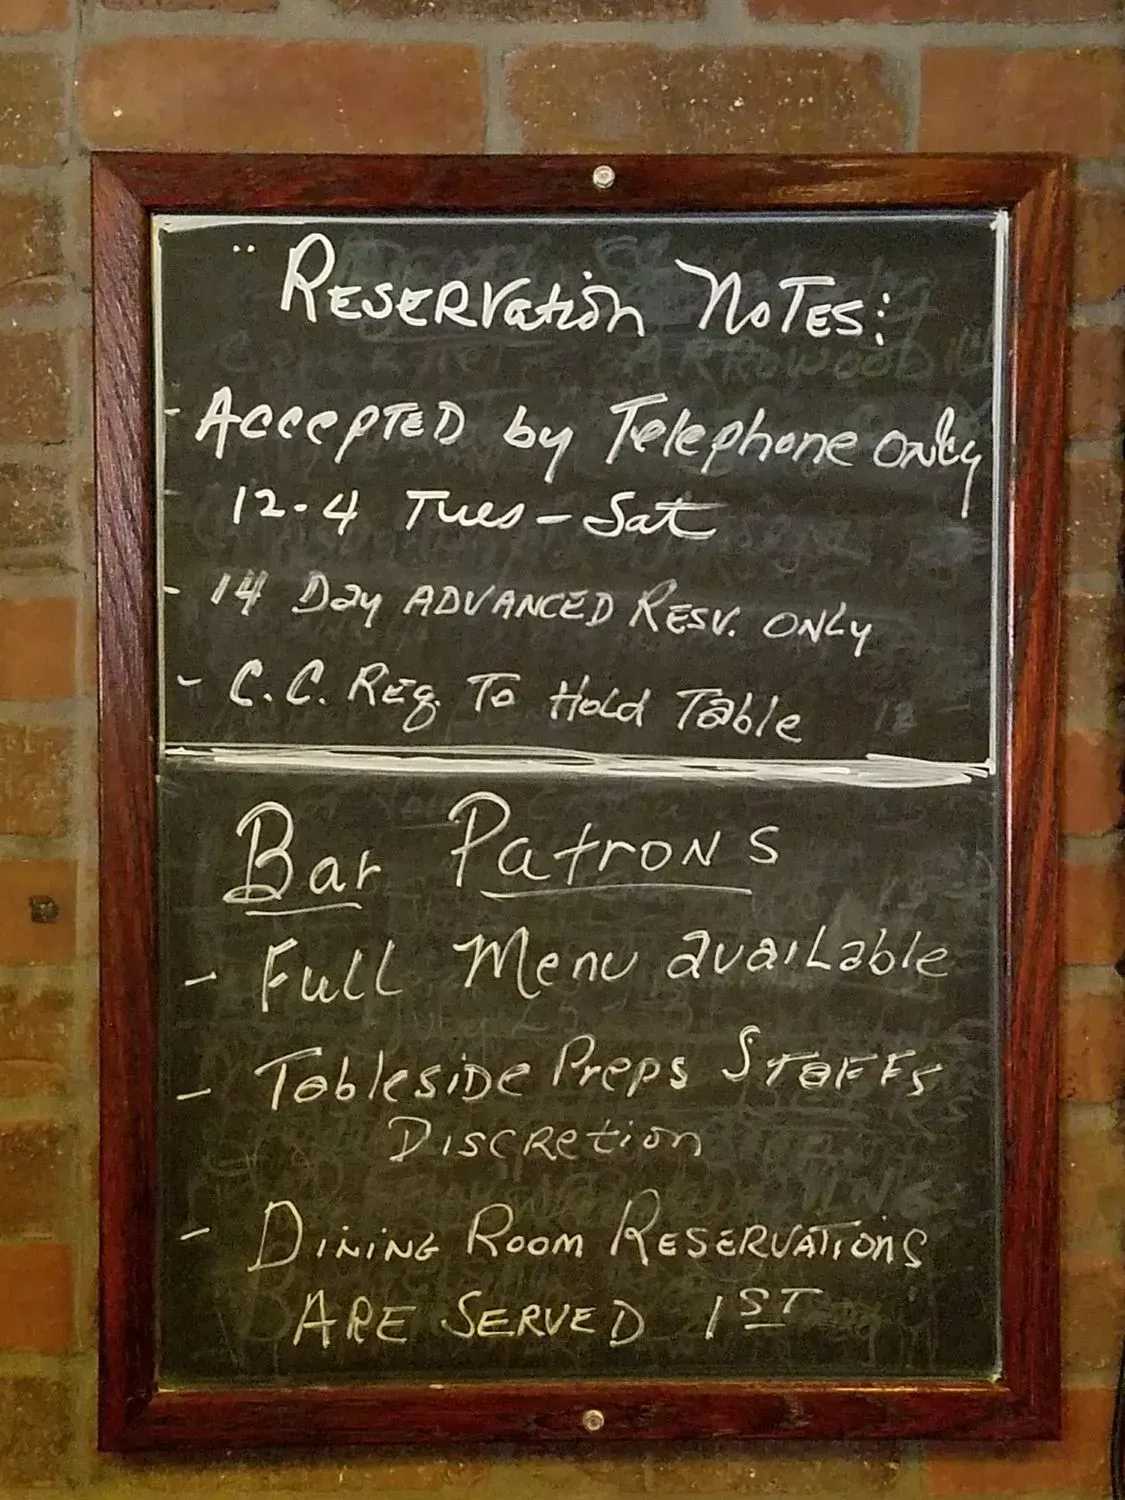 " Reservation Notes:
- Accepted by Telephone only
12-4 Tues - Sat
- 14 Day ADVANCED RESV. ONLY
- C.C. Req. To Hold Table
Bar Patrons
- Full Menu available
- Tableside Preps Staffs
Discretion
- Dining Room Reservations
ARE SERVED 1ST